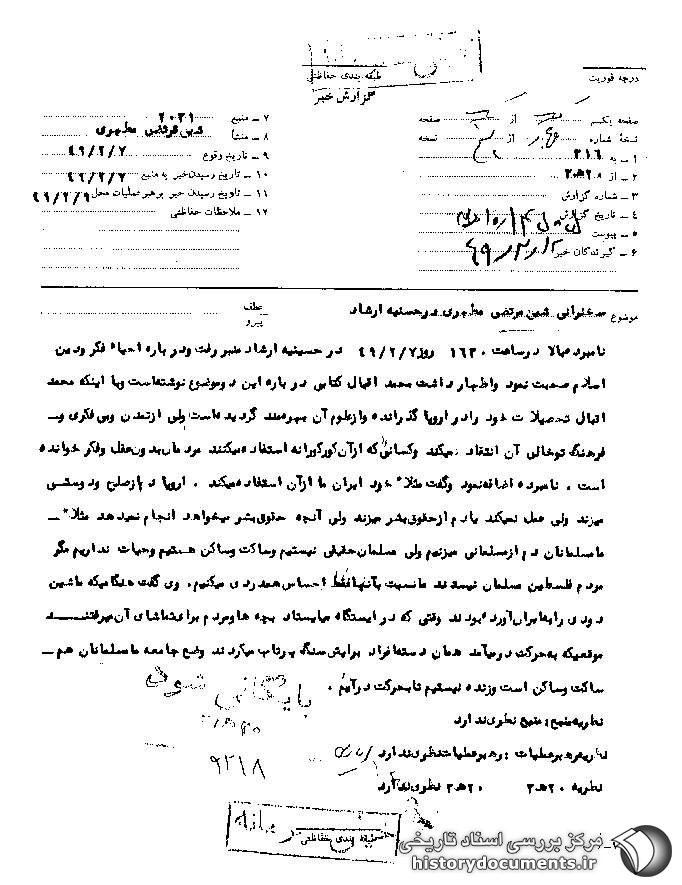 طبقه بندی حفاظتی
گزارش خبر
درجه فوریت
صفحه یکم از صفحه
نسخهٔ شماره از نسخه
۱ ـ به ۳۱۶
۲ ـ از ۲۰ه۲۰
۳ ـ شماره گزارش
۴ ـ تاریخ گزارش
۵ ـ پیوست
۶ ـ گیرندگان خبر
۷ ـ منبع ۲۰۳۱
۸ ـ منشأ شیخ مرتضی مطهری
۹ ـ تاریخ وقوع ۴۹/۲/۷
۱۰ ـ تاریخ رسیدن خبر به منبع ۴۹/۲/۷
۱۱ ـ تاریخ رسیدن خبر برهبر عملیات محل ۴۹/۲/۹
۱۲ ـ ملاحظات حفاظتی
موضوع سخنرانی شیخ مرتضی مطهری در حسنیه ارشاد
عطف
پیرو
نامبرده بالا در ساعت ۱۶۳۰ روز ۴۹/۲/۷ در حسینیه ارشاد منبر رفت و در باره احیاء فکر و دین
اسلام صحبت نمود و اظهار داشت محمد اقبال کتابی در باره این دو موضوع نوشته است و با اینکه محمد
اقبال تحصیلات خود را در اروپا گذرانده و از علوم آن بهره مند گردیده است ولی از تمدن و بی فکری و
فرهنگ تو خالی آن انتقاد میکند و کسانی که از آن کورکورانه استفاده میکنند مردمان بدون عقل و فکر خوانده
است . نامبرده اضافه نمود و گفت مثلاً خود ایران ما از آن استفاده میکند . اروپا دم از صلح و دوستی
میزند ولی عمل نمیکند یا دم از حقوق بشر میزند ولی آنچه حقوق بشر میخواهد انجام نمیدهد مثلاً
ما مسلمانان دم از مسلمانی میزنیم ولی مسلمان حقیقی نیستیم و ساکت و ساکن هستیم و حیات نداریم مگر
مردم فلسطین مسلمان نیستند ما نسبت بآنها فقط احساس همدردی میکنیم . وی گفت هنگامیکه ماشین
دودی را به ایران آورده بودند وقتی که در ایستگاه میایستاد بچه ها و مردم برای تماشای آن میرفتند
موقعیکه به حرکت در میآمد همان دسته افراد برایش سنگ پرتاب میکردند وضع جامعه ما مسلمانان هم
ساکت و ساکن است و زنده نیستیم تا بحرکت درآییم .
بایگانی شود
نظریه منبع : منبع نظری ندارد
نظریه رهبر عملیات : رهبر عملیات نظری ندارد
۹۲۱۸
نظریه ۲۰ه۳ ۲۰ه۳ نظری ندارد
طبقه بندی حفاظتی
مرکز بررسی اسناد تاریخی
historydocuments.ir